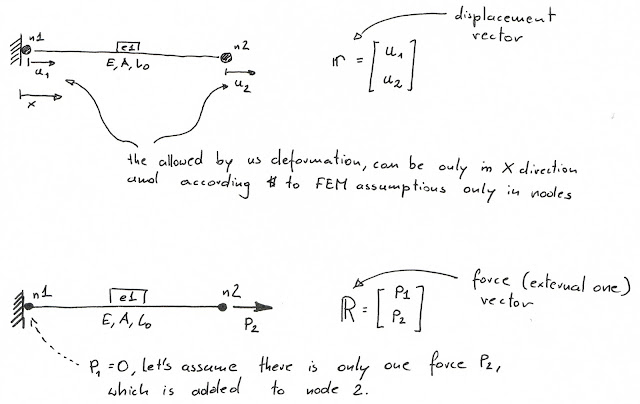 displacement
vector
n1
e1
n2
E, A, L₀
u₁
u₂
x
r = [u₁
u₂]
the allowed by us deformation, can be only in X direction
and according to FEM assumptions only in nodes
n1
e1
n2
E, A, L₀
P₂
R = [P1
P₂]
force (external one)
vector
P₁ = 0, let's assume there is only one force P₂,
which is added to node 2.